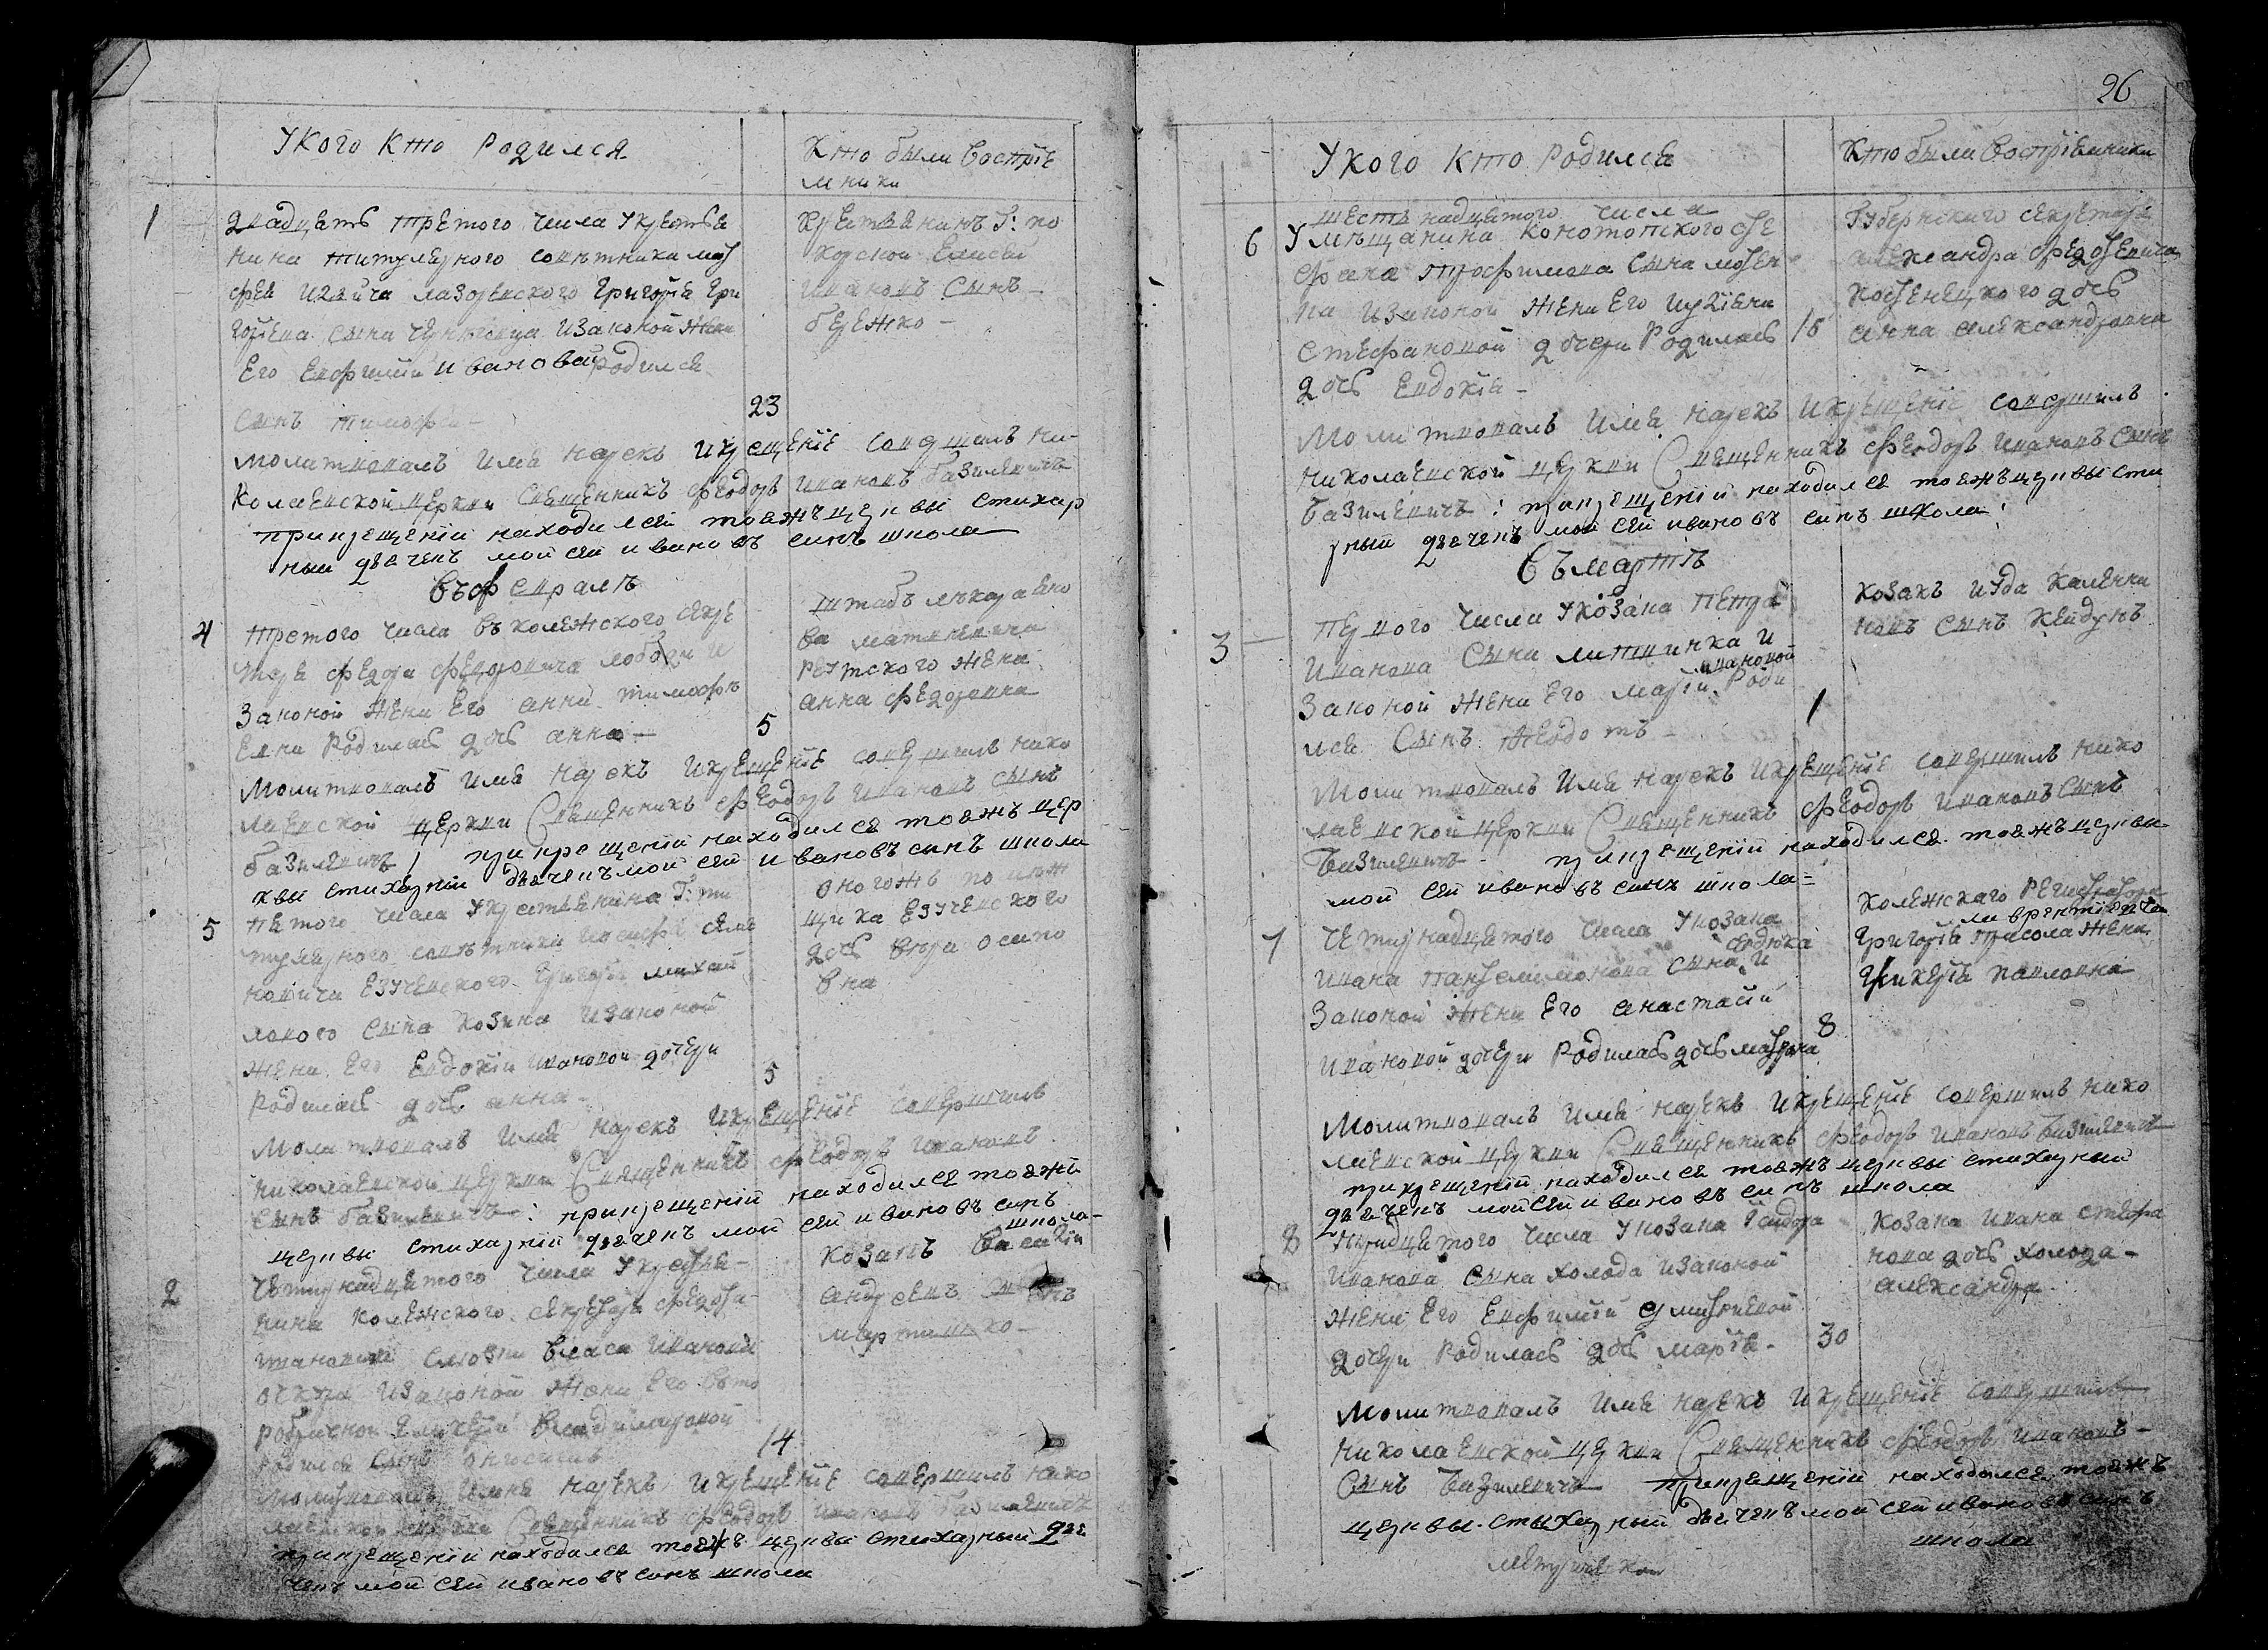 26
У Кого Кто Родился
Кто были Воспріе
мники
1
двадцеть третого числа Укрестья
нина титулярного советника мат
фея Ильича лазоревского Григорія Гри
горіева сына Изаконой жени
Его Евфиміи ивановой родился
сынъ тимофей
23
Крестянинъ Г: по
Корской Елисей
Ивановъ Сынъ
бережко
молитвовалъ Имя нарекъ Икрещеніе совершилъ ни-
колаевской церкви Священникъ феодоръ Ивановъ базилевичъ
прикрещеніи находился тояжъ церкви стихар
ный дьяченъ мойсей ивановъ синъ школа
Въ февралѣ
4
третого числа въ колежского секре
таря федора федоровича лободи и
Законой жени Его анни тимофѣ
Евни Родилась дочь анна
5
штабъ лѣкара яко
ва матвеевича
Реутского жена
анна федоровна
Молитвовалъ Имя нарекъ Икрещеніе совершилъ нико
лаевской церкви Священникъ феодоръ Ивановъ сынъ
базилевичъ / при крещеніи находился тояжъ цер
квы стихарній дьяченъ мойсей ивановъ сынъ школа
5
пятого числа Укрестьянина Г: ти
тулярного советника иосифа семе
новича Езучевского Григорія михай
лового Сына Козина Изаконой
жени Его Евдокіи ивановой дочери
Родилась дочь анна
5
оногожъ помеж
щика Езучевского
дочь вера осипо
вна
Молитвовалъ Имя нарекъ Икрещеніе совершилъ
николаевской церкви Священникъ феодоръ Ивановъ
сынъ базилевичъ: прикрещеніи находился тояжъ
церквы стихарній дьяченъ мойсей ивановъ сынъ
школа
2
Четирнадцятого числа Укрестья-
нина колежского секретаря федора
Власа Иванова
Изаконой жени Его вто
робрачной Владимировой
Родился Сынъ онисимъ
14
козакъ Василій
андреевъ сынъ
мартишко
молитвовалъ Имя нарекъ Икрещеніе совершилъ нико
лаевской церкви Священникъ феодоръ Ивановъ базилевичъ
прикрещеніи находился тояжъ церквы стихарный дья
ченъ мойсей ивановъ сынъ школа
У Кого Кто Родился
Кто были Воспріемники
шестьнадцятого числа
6
У мѣщанина конотопского сте
фана трофимова сына
на Изаконой жени Его
Стефановой дочери Родилась
дочь Евдокія
16
Губернского секретаря
александра федоровича
Косенецкого дочь
анна александровна
Молитвовалъ Имя нарекъ Икрещеніе совершилъ
николаевской церкви Священникъ феодоръ Ивановъ Сынъ
базилевичъ: прикрещеніи находился тояжъ церквы сти
рный дьяченъ мойсей ивановъ синъ школа:
Въ мартѣ
3
Первого числа Укозака Петра
Иванова Сына литвинка и
Законой жени Его маріи ивановой Роди
лся Сынъ Феодотъ
1
Козакъ Иуда калени
ковъ сынъ Кейдунъ
Молитвовалъ Имя нарекъ Икрещеніе совершилъ нико
лаевской церкви Священникъ феодоръ Ивановъ Сынъ
базилевичъ прикрещеніи находился тояжъ церкви
мойсей ивановъ синъ школа=
7
Четирнадцятого числа Укозака
Ивана Пантелимонова Сына сердюка И
Законой жени Его анастасіи
Ивановой дочери Родилась дочь матрона
8
Колежского Регистратора
лаврентіевича
Григорія присола жена
Гликерія павловна
Молитвовалъ Имя нарекъ Икрещеніе совершилъ нико
лаевской церкви Священникъ феодоръ Ивановъ базилевичъ
прикрещеніи находился тояжъ церквы стихарный
дьяченъ мойсей ивановъ синъ школа
8
числа Укозака Ісидора
Иванова сына холода Изаконой
жени Его Евфиміи дмитріевой
дочери Родилась дочь марія
30
Козака Ивана стефа
нова дочь холода-
александра
Молитвовалъ Имя нарекъ Икрещеніе совершилъ
Николаевской церкви Священникъ феодоръ Ивановъ-
Сынъ базилевичъ прикрещеніи находился тояжъ
церквы стыхарный дьяченъ мойсей ивановъ синъ
школа